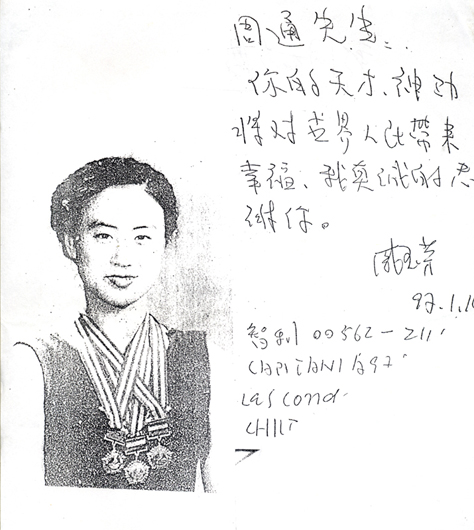 周通先生:
你的天才、神功
将对世界人民带来
幸福、我真诚的感
谢你。
97.1.1
智利 00562-211
Las Cond
CHILI